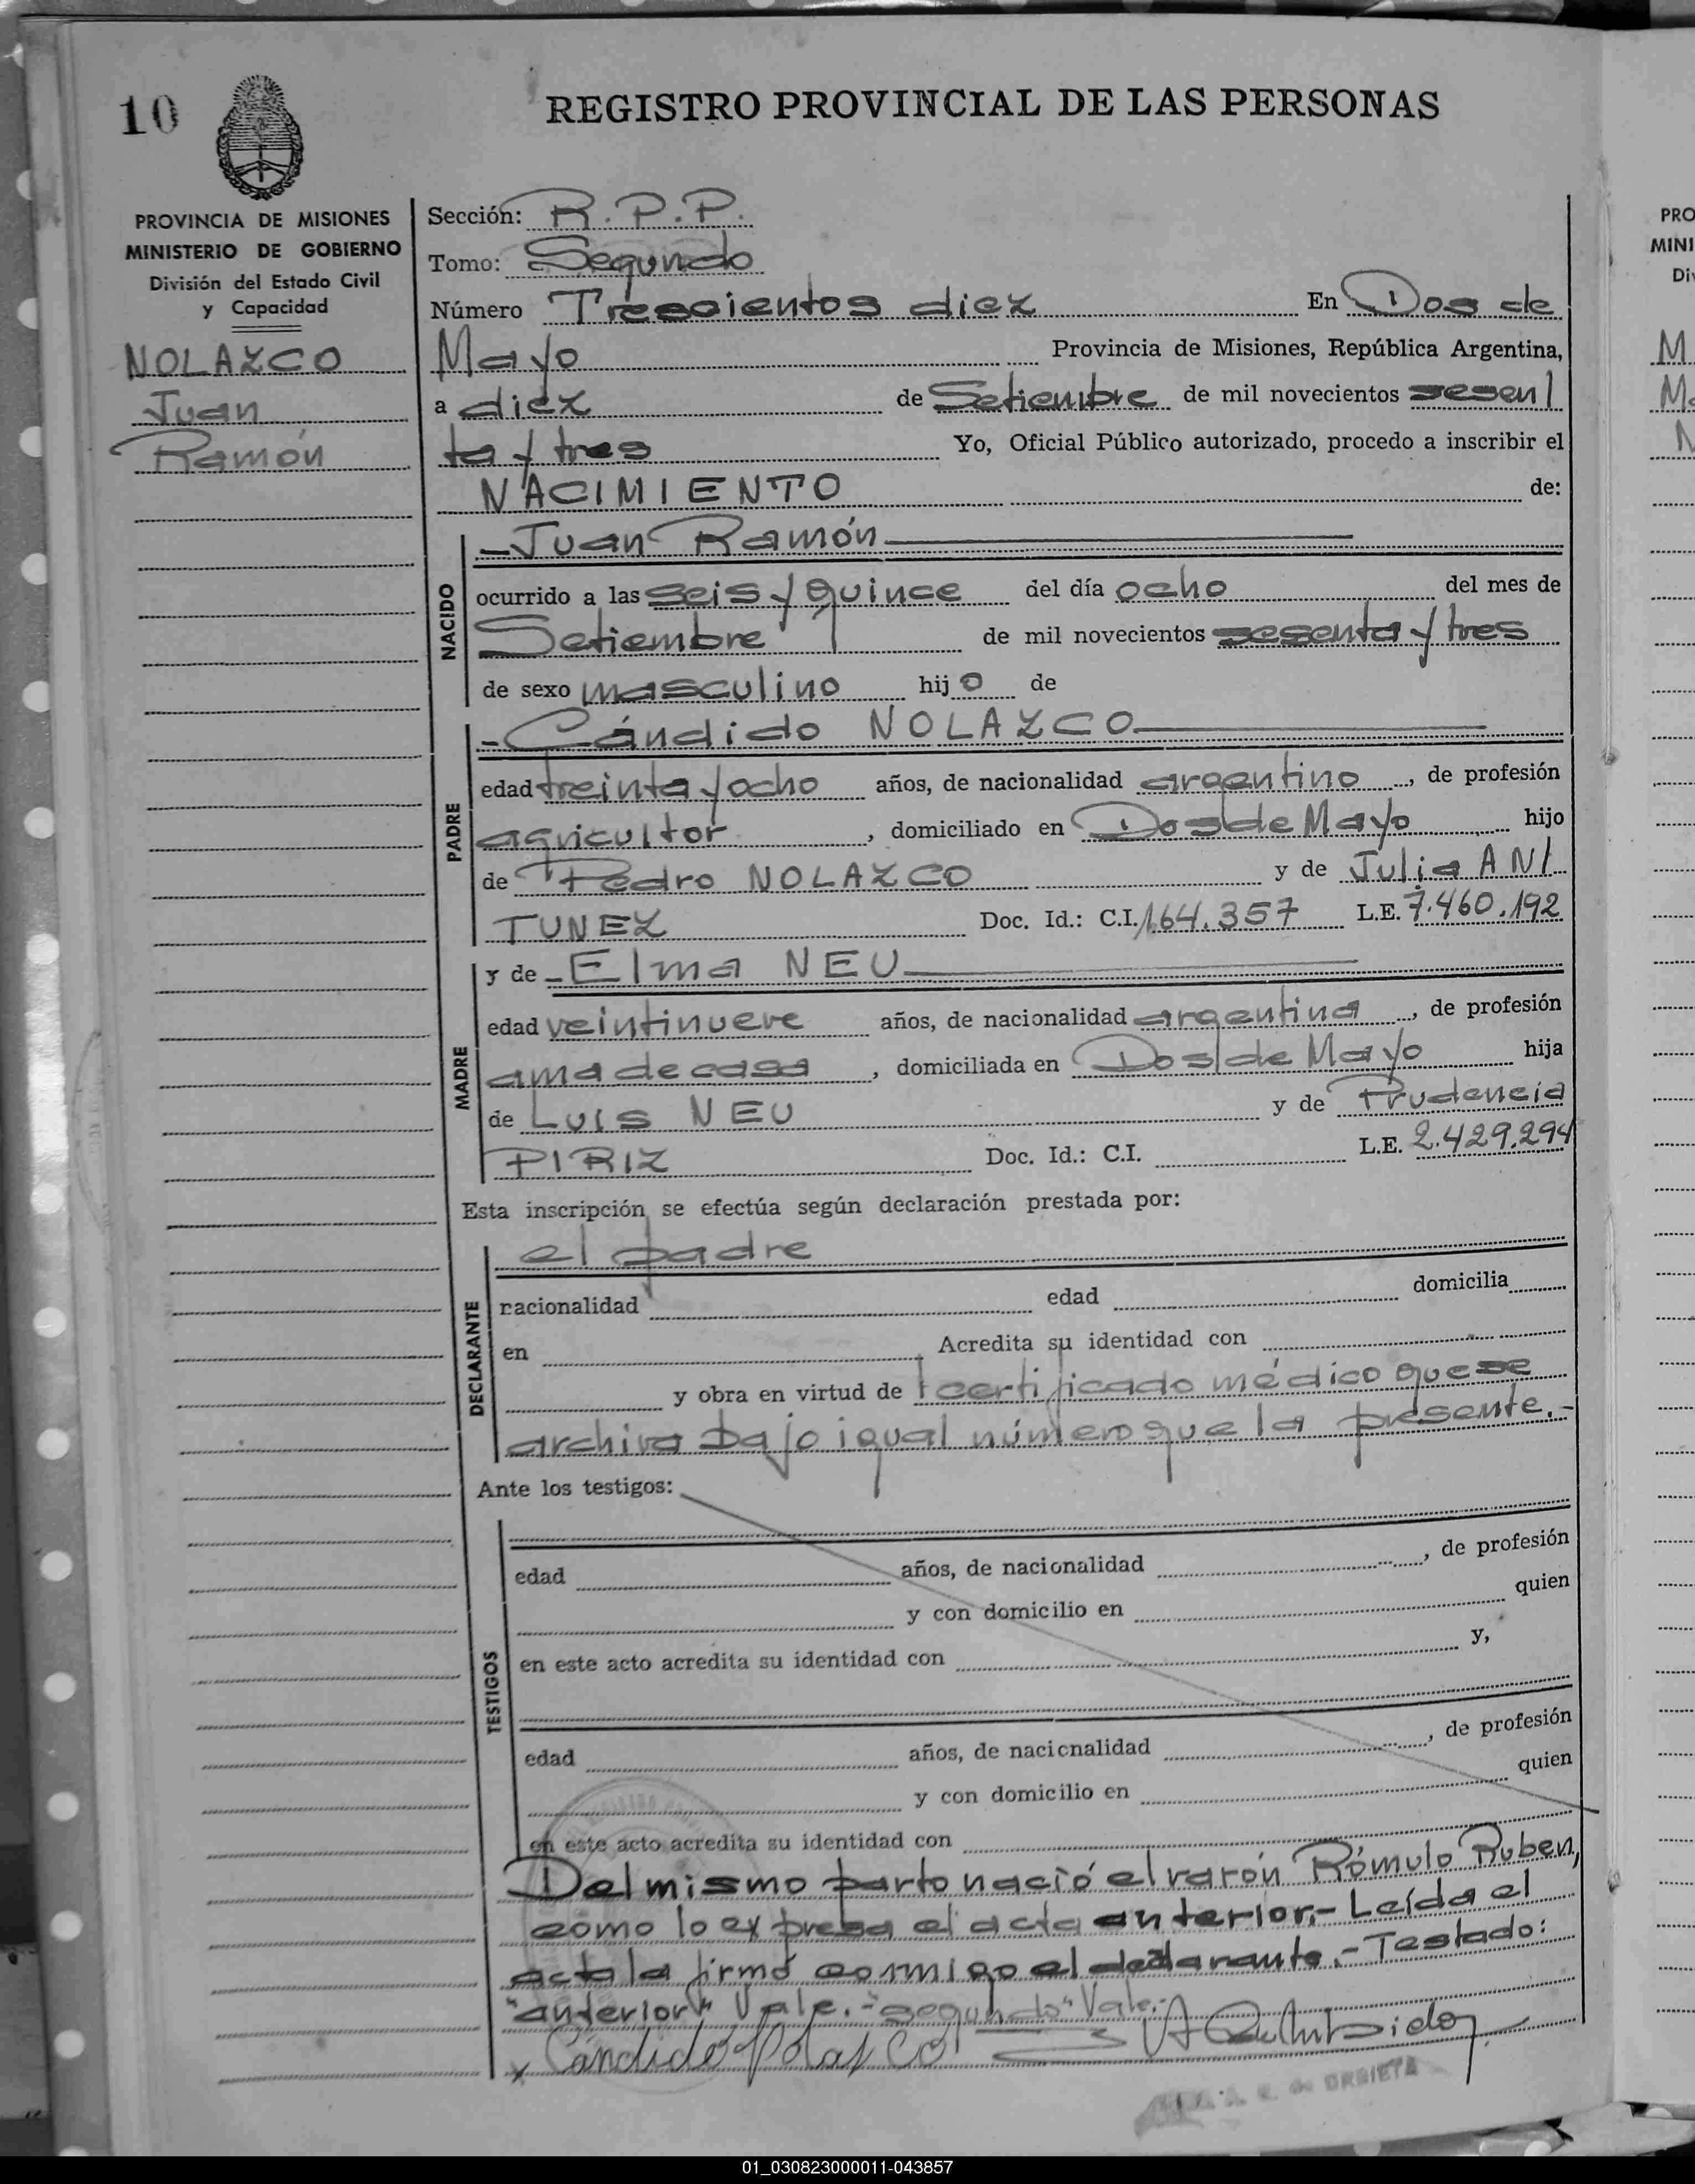 10
REGISTRO PROVINCIAL DE LAS PERSONAS
PROVINCIA DE MISIONES
MINISTERIO DE GOBIERNO
División del Estado Civil
y Capacidad
NOLAZCO
Juan
Ramón
Sección: R.P.P.
Tomo: Segundo
Número Trescientos diez En Dos de
Mayo Provincia de Misiones, República Argentina,
a diez de Setiembre de mil novecientos sesen/
ta y tres Yo, Oficial Público autorizado, procedo a inscribir el
NACIMIENTO de:
NACIDO
-Juan Ramón
ocurrido a las seis y quince del día ocho del mes de
Setiembre de mil novecientos sesenta y tres
de sexo masculino hijo de
PADRE
-Cándido NOLAZCO
edad treinta y ocho años, de nacionalidad argentino, de profesión
agricultor, domiciliado en Dos de Mayo hijo
de Pedro NOLAZCO y de Julia AN/
TUNEZ Doc. Id.: C.I. 164.357 L.E. 7.460.192
MADRE
y de -Elma NEU
edad veintinueve años, de nacionalidad argentina, de profesión
ama de casa, domiciliada en Dos de Mayo hija
de Luis NEU y de Prudencia
PIRIZ Doc. Id.: C.I. L.E. 2.429.294
Esta inscripción se efectúa según declaración prestada por:
DECLARANTE
el padre
nacionalidad edad domicilia
en Acredita su identidad con
y obra en virtud de certificado médico que se
archiva bajo igual número que la presente.-
Ante los testigos:
TESTIGOS
edad años, de nacionalidad, de profesión
y con domicilio en quien
en este acto acredita su identidad con y,
edad años, de nacionalidad, de profesión
y con domicilio en quien
en este acto acredita su identidad con
Del mismo parto nació el varón Rómulo Ruben,
como lo expresa el acta anterior.- Leída el
acta la firmó conmigo el declarante.- Testado:
"anterior" Vale.- "segundo" Vale.-
x Cándido Nolazco
de URBIETA
PRO
MINI
Di
M
M
01_030823000011-043857